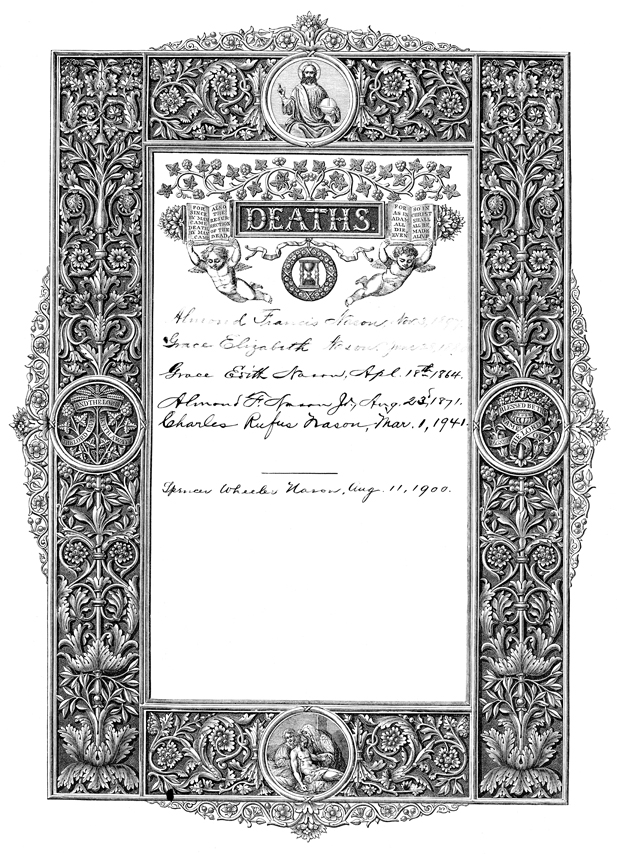 FOR SINCE BY MAN CAME DEATH BY MAN CAME
ALSO THE RESUR RECTION OF THE DEAD.
DEATHS.
FOR AS IN ADAM ALL DIE, EVEN
SO IN CHRIST SHALL ALL BE MADE ALIVE.
Almond Francis Nason, Nov.
Grace Elizabeth Nason,
Grace Edith Nason, Apl. 18th, 1864.
Almond F. Nason Jr, Aug. 23, 1871.
Charles Rufus Nason, Mar. 1, 1941.
BLESSED BE THE
Spencer Wheeler Nason, Aug. 11, 1900.